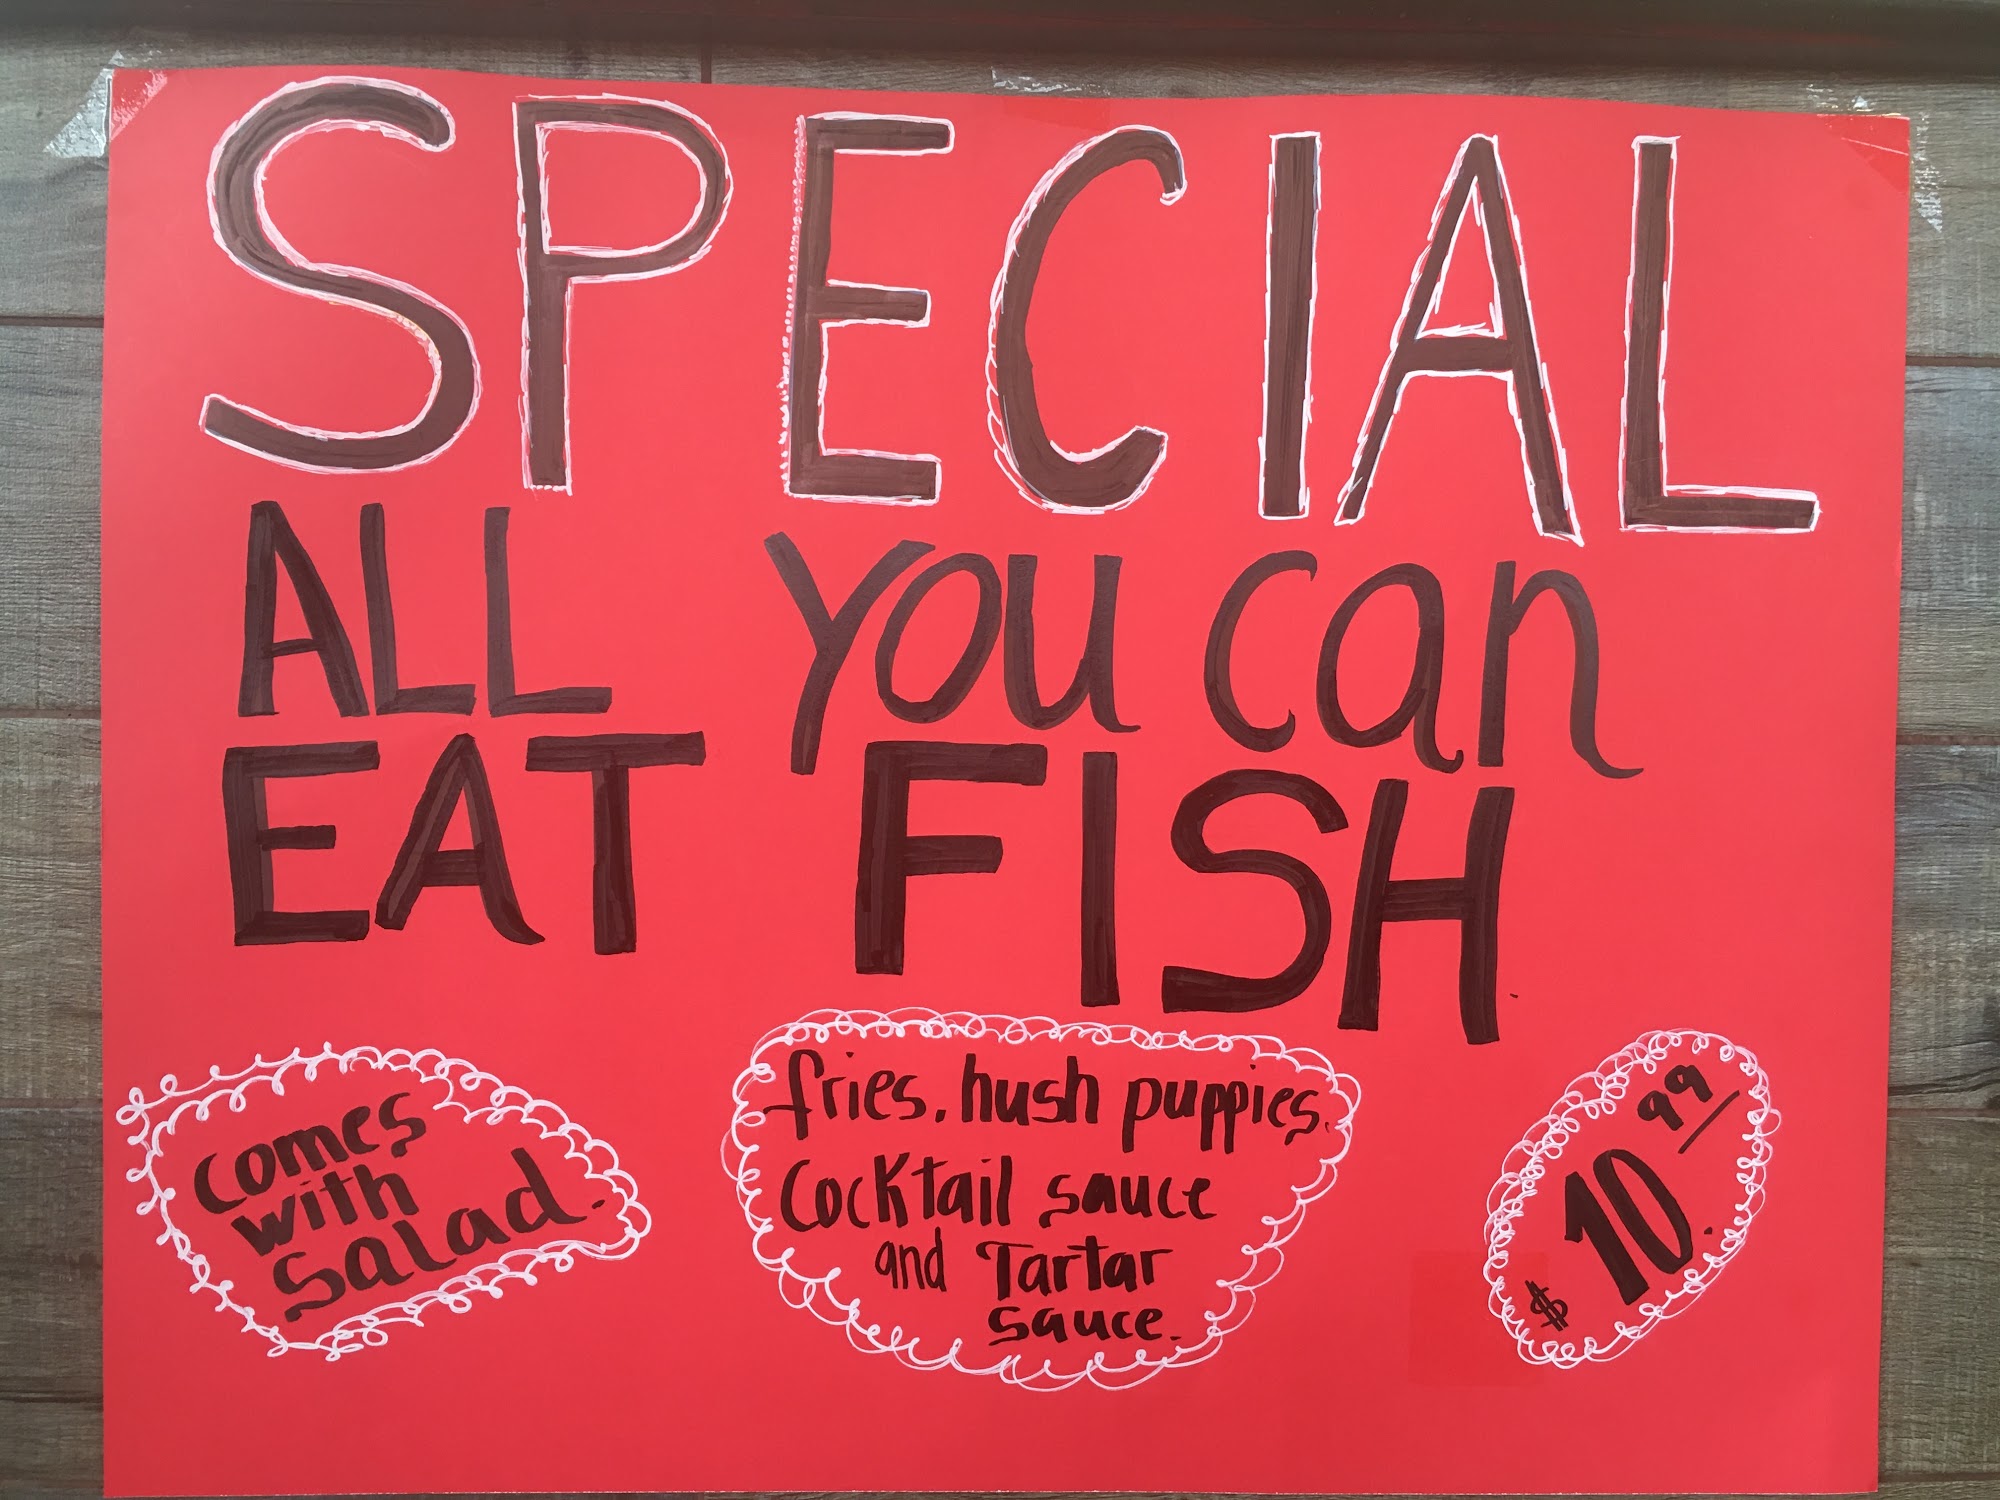 SPECIAL
ALL YOU can
EAT FISH
comes
with
salad.
fries, hush puppies,
Cocktail sauce
and Tartar
sauce.
$10.99